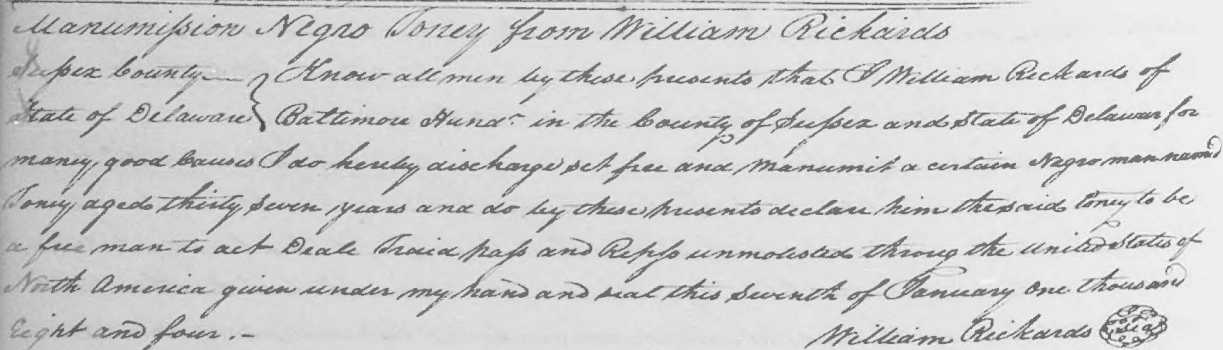 Manumission Negro Toney from William Rickards
Sussex County } Know all men by these presents that I William Rickards of
State of Delaware } Baltimore Hund.r in the County of Sussex and State of Delaware for
maney good Causes I do hereby discharge set free and Manumit a certain Negro man named
Toney aged thirty seven years and do by these presents declare him the said Toney to be
a free man to act Deale Traid pass and Repss unmolested throug the United States of
North America given under my hand and seal this Seventh of January One thousand
Eight and four.-
William Rickards